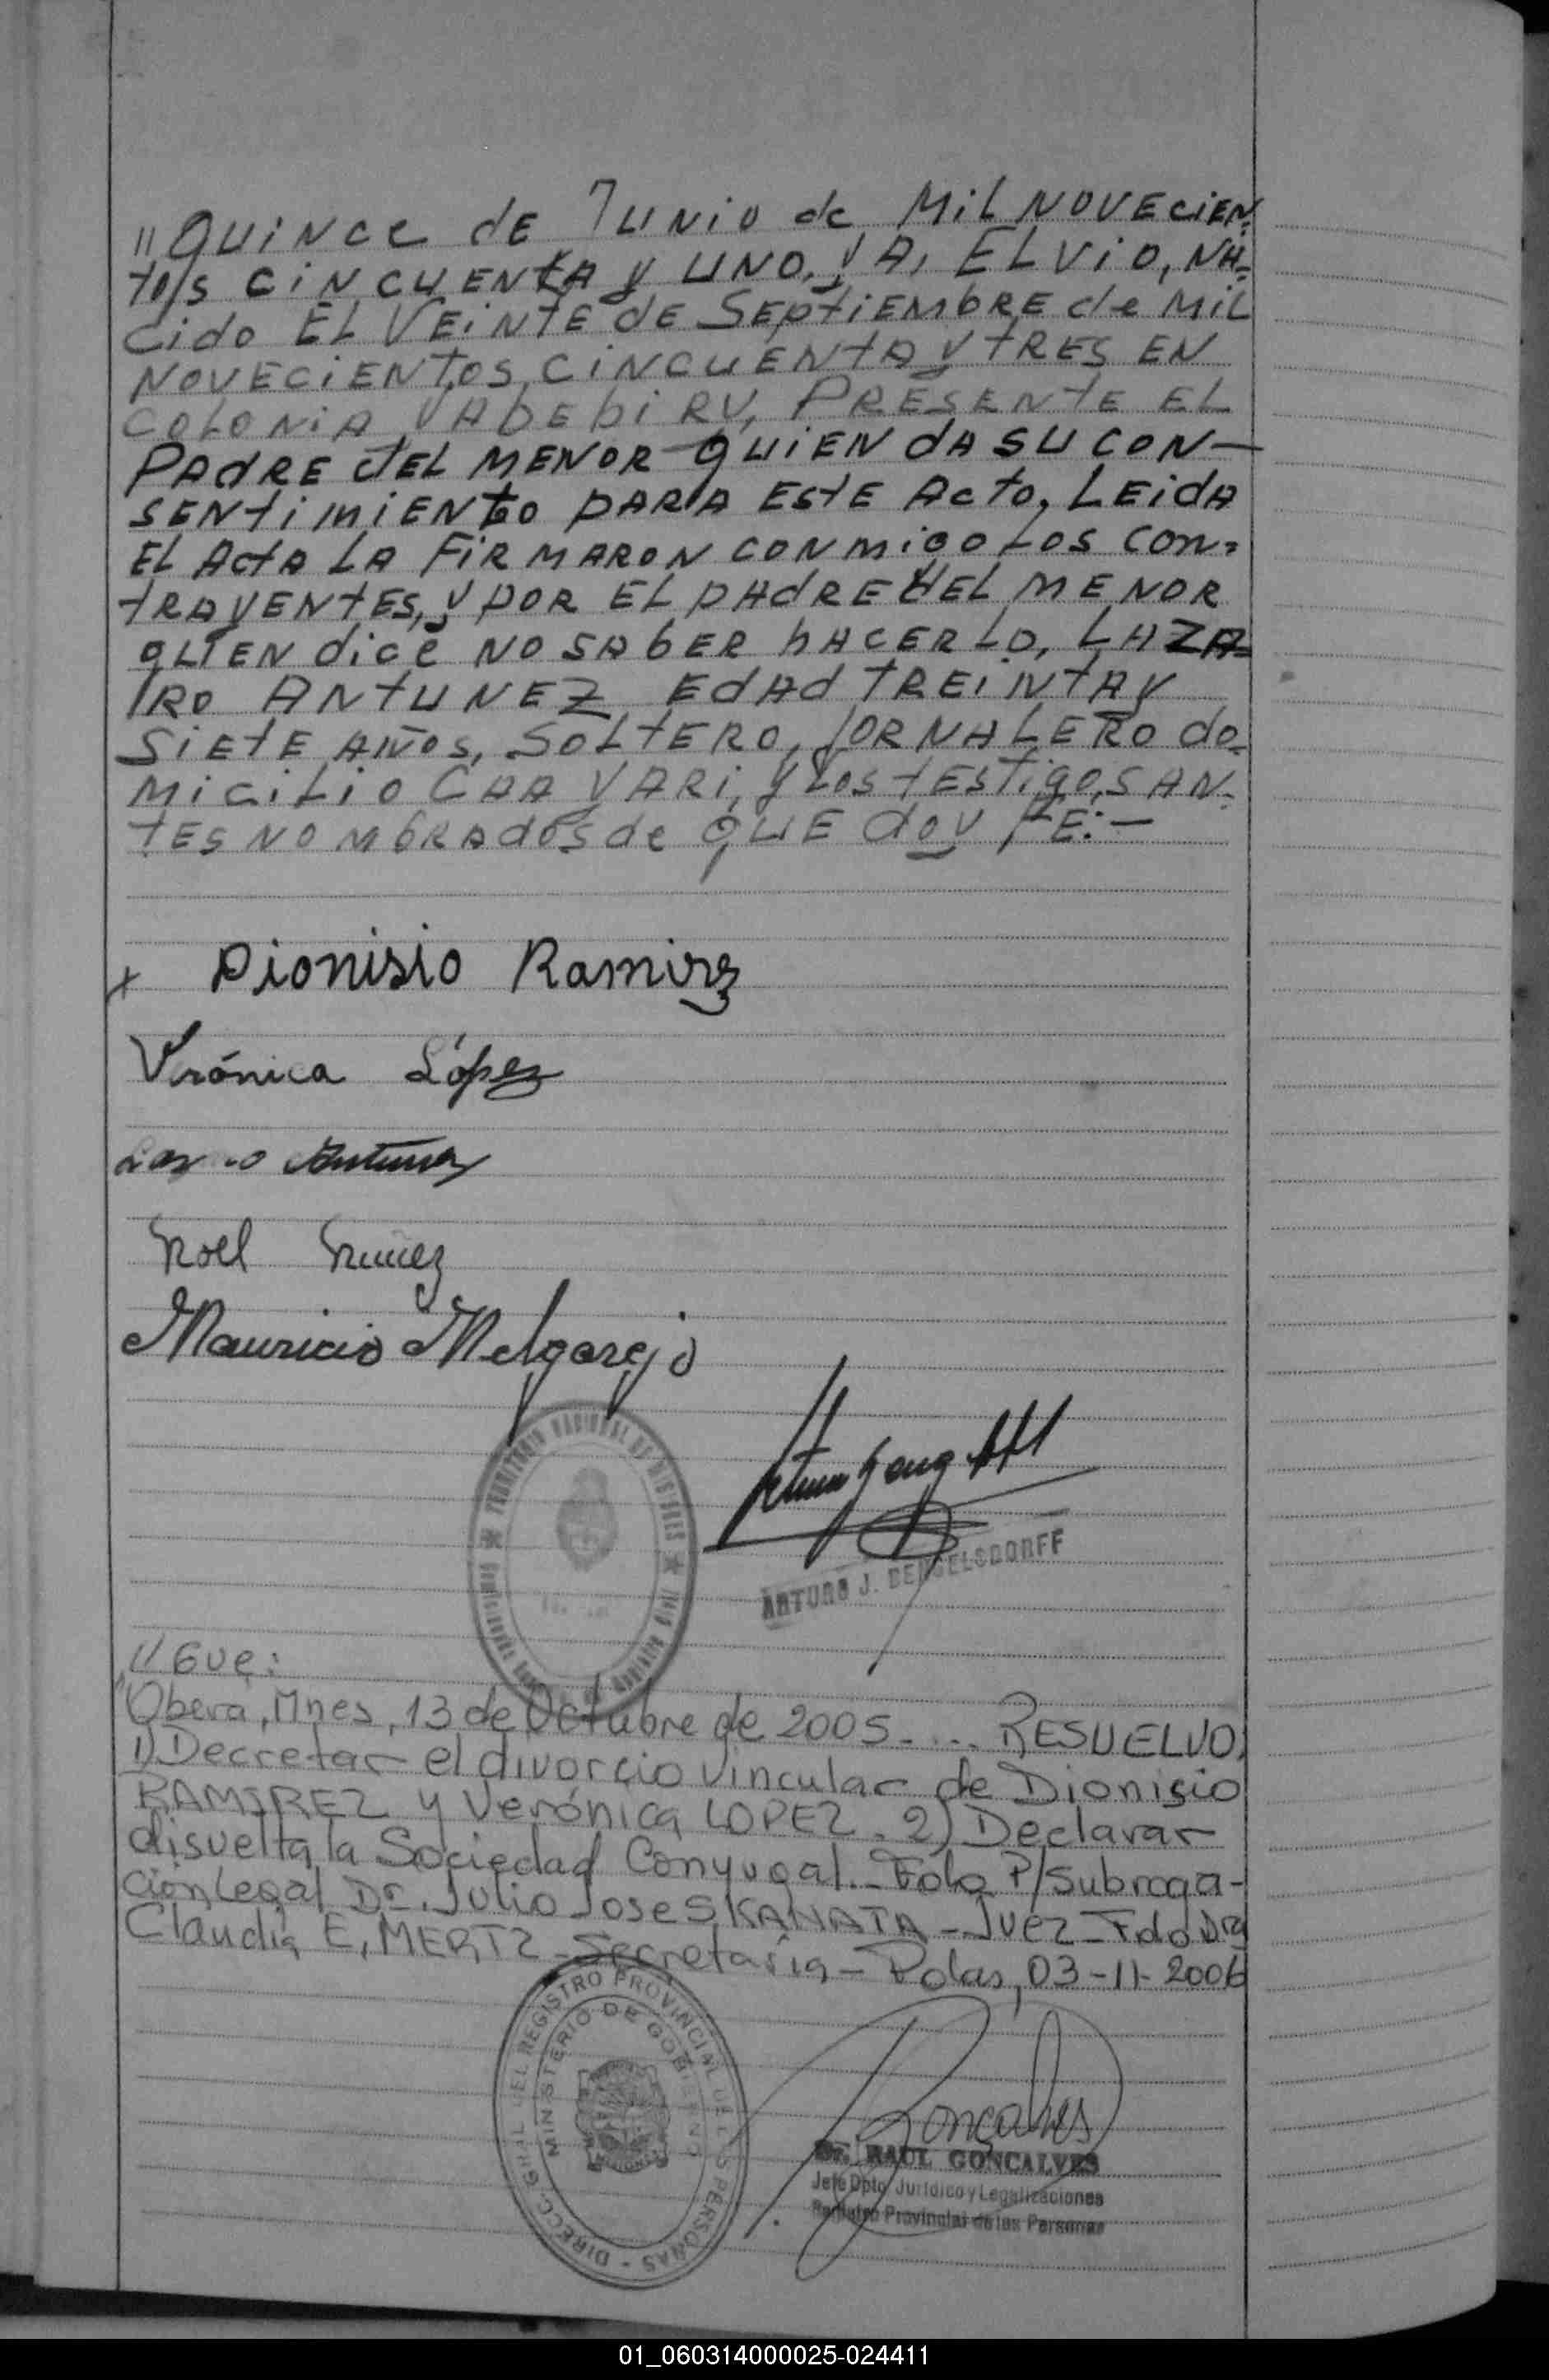 "QUINCE dE JUNIO de MIL NOVECIEN-
tos CINCUENtA y UNO, y A, ELVIO, NA-
cido EL VEINTE dE SEptIEMBRE de MIL
NOVECIENTOS CINCUENtA y tRES EN
COLONIA YABEBIRY, PRESENTE EL
PADRE dEL MENOR QUIEN dA SU CON-
SENtiMIENto PARA EstE Acto, LEidA
EL ActA LA FIRMARON CONMIGO LOS CON-
tRAYENTES, y POR EL PADRE dEL MENOR
QUIEN dicE NO SABER hACERLO, LAZA-
RO ANtUNEZ EdAd tREINtA y
SIEtE AÑOS, SOLtERO, JORNALERO do-
MICILIO CAA YARI, y LOS tEStigos AN-
tES NOMBRAdOS de QUE doy FE:-
x Dionisio Ramirez
Verónica López
Antunez
Noel Nuñez
Mauricio Melgarejo
TERRITORIO NACIONAL DE MISIONES
ARTURO J. BENGELSDORFF
//Gue:
"Obera, Mnes, 13 de Octubre de 2005. ... RESUELVO,
1) Decretar el divorcio vincular de Dionisio
RAMIREZ y Verónica LOPEZ. 2) Declarar
disuelta la Sociedad Conyugal.- Fdo P/Subroga-
ción Legal Dr. Julio Jose SKANATA - Juez - Fdo Dra
Claudia E, MERTZ - Secretaria - Pdas, 03-11-2006
DIRECC. GRAL DEL REGISTRO PROVINCIAL DE LAS PERSONAS
MINISTERIO DE GOBIERNO
MISIONES
Goncalves
Dr. RAUL GONCALVES
Jefe Dpto Jurídico y Legalizaciones
Registro Provincial de las Personas
01_060314000025-024411